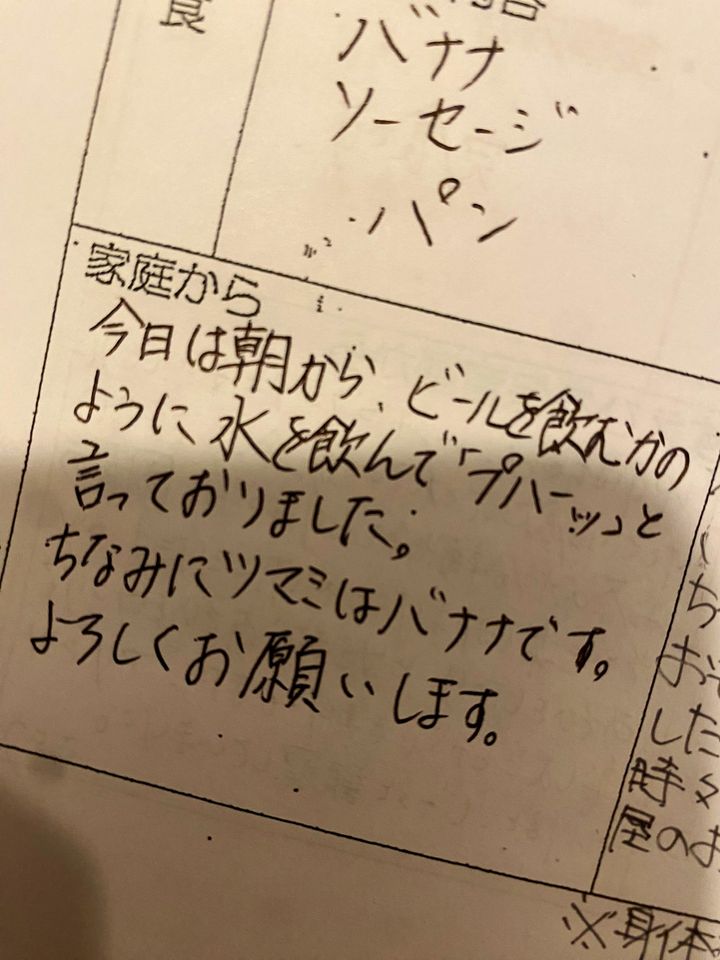 食
内容
バナナ
ソーセージ
パン
家庭から
今日は朝から、ビールを飲むかの
ように水を飲んで「プハーッ」と
言っておりました。
ちなみにツマミはバナナです。
よろしくお願いします。
ち
お
した
時々
屋のお
※身体